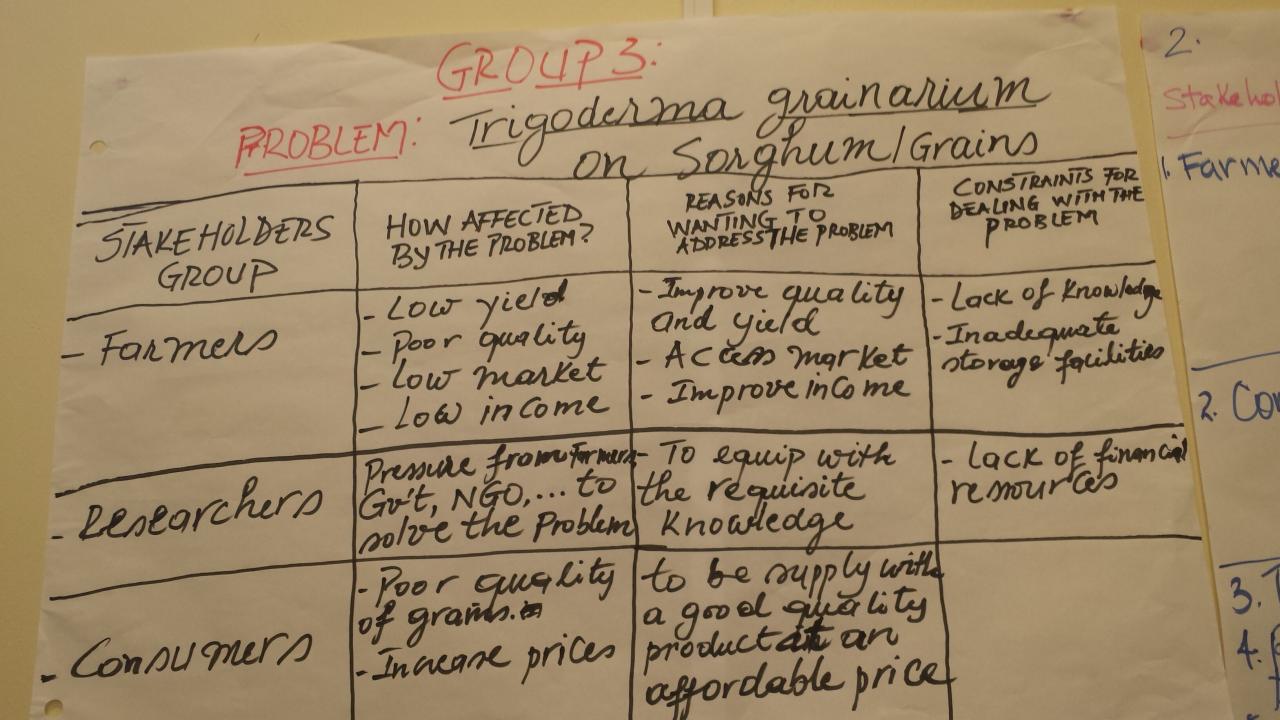 GROUP 3:
PROBLEM: Trigoderma grainarium
on Sorghum/Grains
STAKEHOLDERS
GROUP
HOW AFFECTED
BY THE PROBLEM?
REASONS FOR
WANTING TO
ADDRESS THE PROBLEM
CONSTRAINTS FOR
DEALING WITH THE
PROBLEM
- Farmers
- Low yield
- Poor quality
- Low market
- Low income
- Improve quality
and yield
- Access market
- Improve income
- Lack of Knowledge
- Inadequate
storage facilities
- Researchers
Pressure from Farmers
Gv't, NGO,... to
solve the Problem
- To equip with
the requisite
Knowledge
- Lack of financial
ressources
- Consumers
- Poor quality
of grains.
- Increase prices
to be supply with
a good quality
product at an
affordable price
2.
1. Farme
2. Co
3.
4.